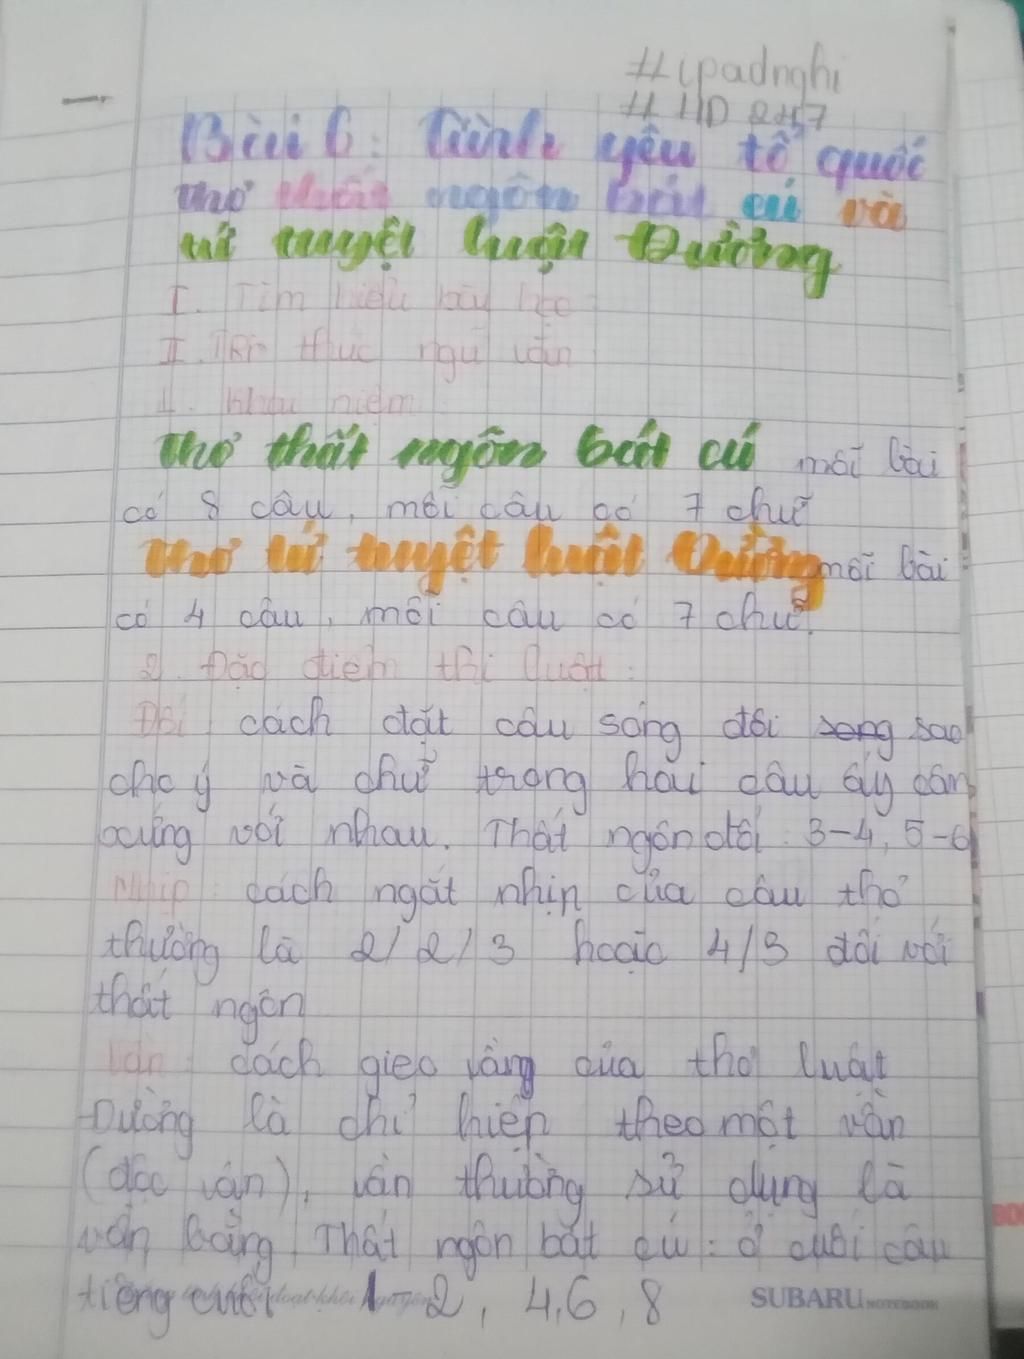 #ipadnghi
# HD 2k7
Bài 6: Tình yêu tổ quốc
Thơ thất ngôn bát cú và
tứ tuyệt luật Đường
I. Tìm hiểu bài học
II. Tri thức ngữ văn
1. Khái niệm
Thơ thất ngôn bát cú mỗi bài
có 8 câu, mỗi câu có 7 chữ
Thơ tứ tuyệt luật Đường mỗi bài
có 4 câu, mỗi câu có 7 chữ.
2. Đặc điểm thi luật:
Đối cách đặt câu sóng đôi song sao
cho ý và chữ trong hai câu ấy cân
xứng với nhau. Thất ngôn đối: 3-4, 5-6
Nhịp: cách ngắt nhịp của câu thơ
thường là 2/2/3 hoặc 4/3 đối với
thất ngôn
Vần: cách gieo vầng của thơ luật
Đường là chỉ hiệp theo một vần
(độc vận), vần thường sử dụng là
vần bằng. Thất ngôn bát cú: ở cuối câu
tiếng cuối 1-2, 4, 6, 8
SUBARU NOTEBOOK